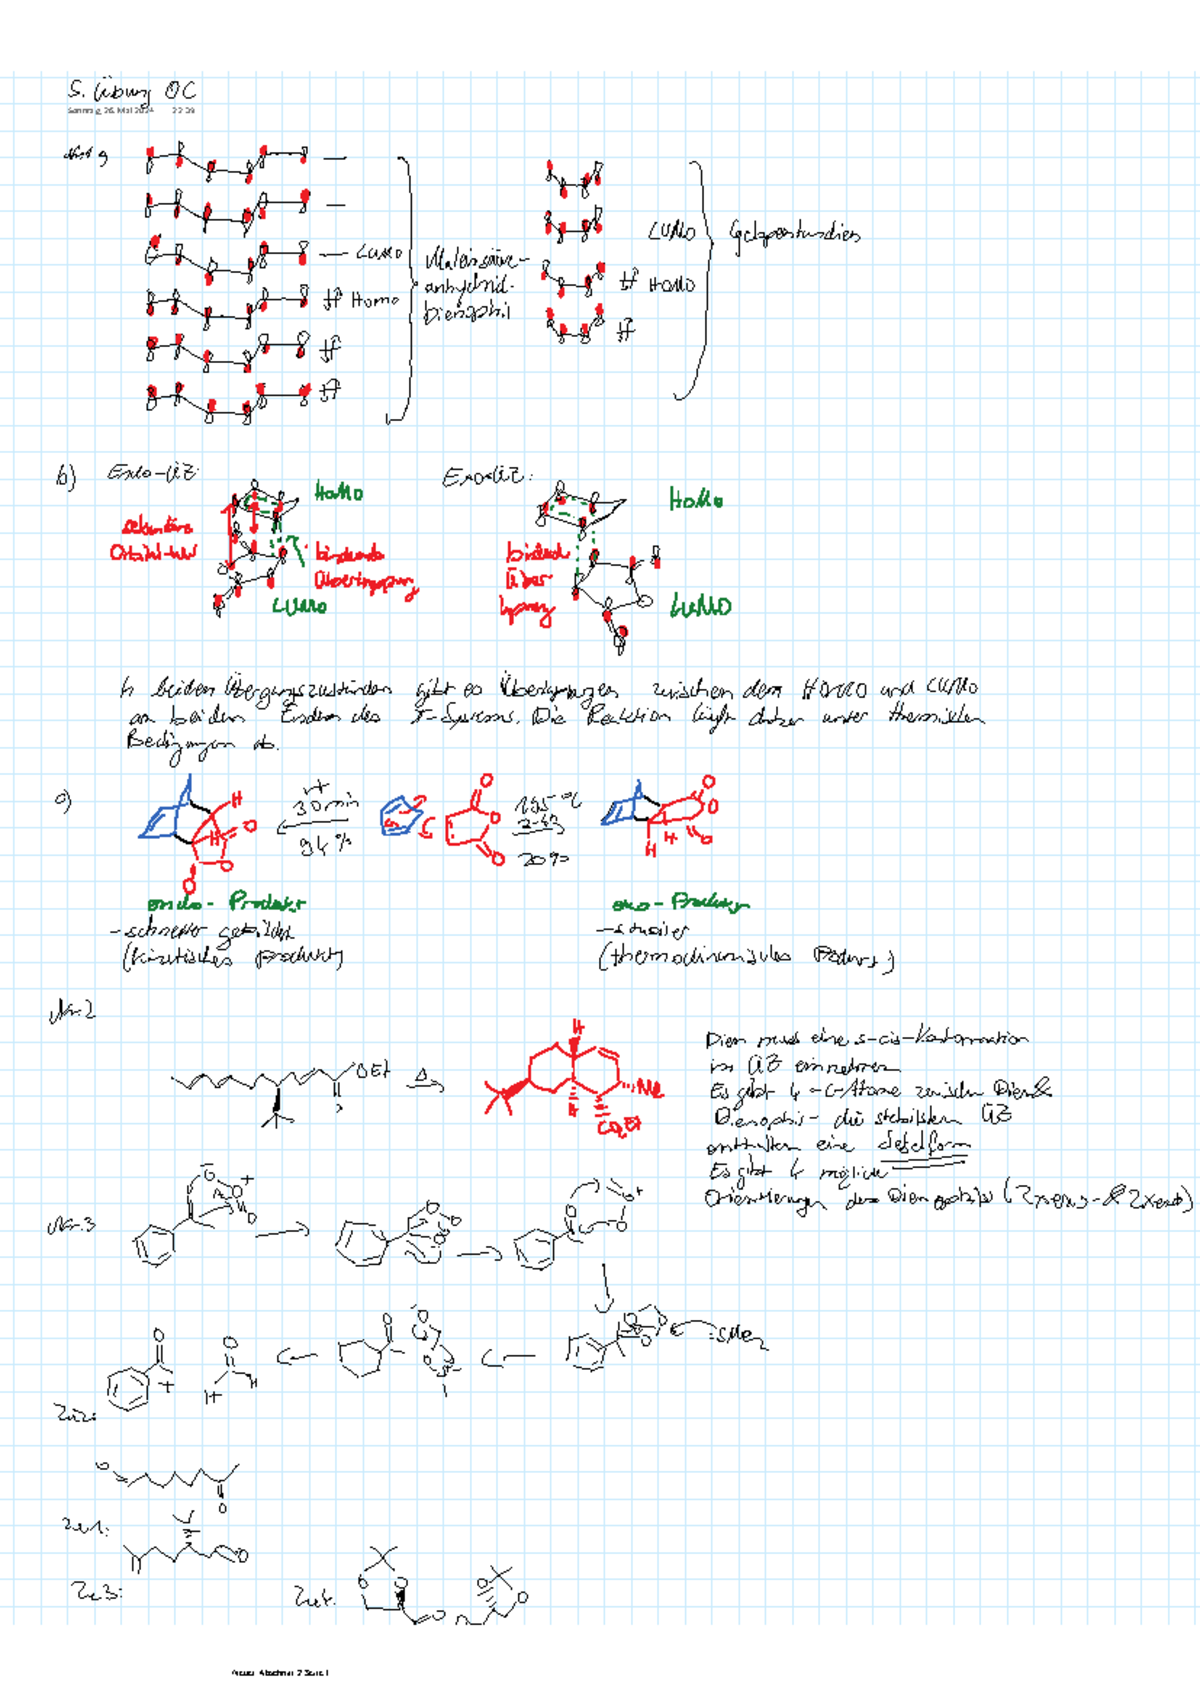 5. Übung OC
Sonntag, 26. Mai 2024 22:29
LUMO
Homo
Maleinsäure-
anhydrid-
Dienophil
LUMO
HOMO
b) Endo-ÜZ:
HOMO
sekundäre
Orbital-WW
bindende
Überlappung
LUMO
Exo-ÜZ:
HOMO
bindende
Über
LUMO
In beiden Übergangszuständen gibt es Überlappungen zwischen dem HOMO und LUMO
an beiden Enden des π-Systems. Die Reaktion läuft daher unter thermischen
Bedingungen ab.
c)
H
H
O
O
O
rt
30 min
94 %
O
O
O
O
O
H
H
O
endo-Produkt
- schneller gebildet
(kinetisches Produkt)
exo-Produkt
- stabiler
Nr. 2
OEt
O
Δ
H
H
Me
CO₂Et
Dien muss eine s-cis-Konformation
im ÜZ einnehmen
Es gibt 4 C-Atome zwischen Dien &
Dienophil - die stabilsten ÜZ
enthalten eine Sesselform
Es gibt 4 mögliche
Nr. 3
:SMe₂
O
O
H
H
Zu 2:
O
O
Zu 1:
O
Zu 3:
Zu 4:
O
O
O
O
O
Neuer Abschnitt 2 Seite 1